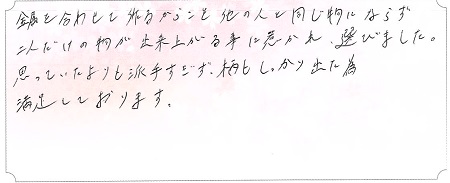 金属を合わせて作るからこそ他の人と同じ物にならず
二人だけの物が出来上がる事に惹かれ、選びました。
思っていたよりも派手すぎず、柄もしっかり出た為
満足しております。